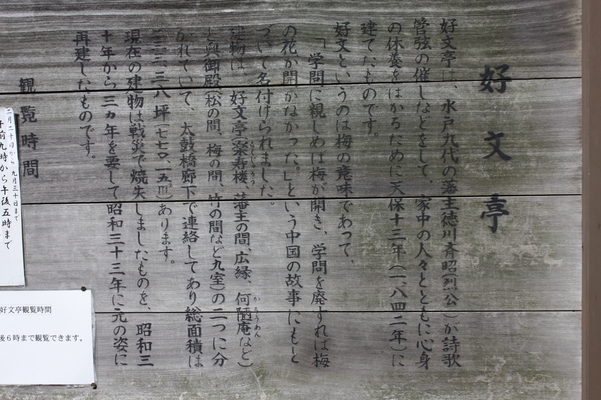 好文亭
好文亭は、水戸九代の藩主徳川斉昭(烈公)が詩歌
管弦の催しなどをして、家中の人々とともに心身
の休養をはかるために天保十三年(一八四二年)に
建てたものです。
好文というのは梅の意味であって、
「学問に親しめば梅が開き、学問を廃すれば梅
の花が開かなかった。」という中国の故事にもと
づいて名付けられました。
建物は、好文亭(楽寿楼、藩主の間、広縁、何陋庵など)
と奥御殿(松の間、梅の間、竹の間など九室)の二つに分
られていて、太鼓橋廊下で連絡してあり総面積は
二三三・二八坪(七七〇・五㎡)あります。
現在の建物は戦災で焼失しましたものを、昭和三
十年から三ヵ年を要して昭和三十三年に元の姿に
再建したものです。
観覧時間
二月二十日から九月三十日まで
午前九時から午後五時まで
好文亭観覧時間
後6時まで観覧できます。